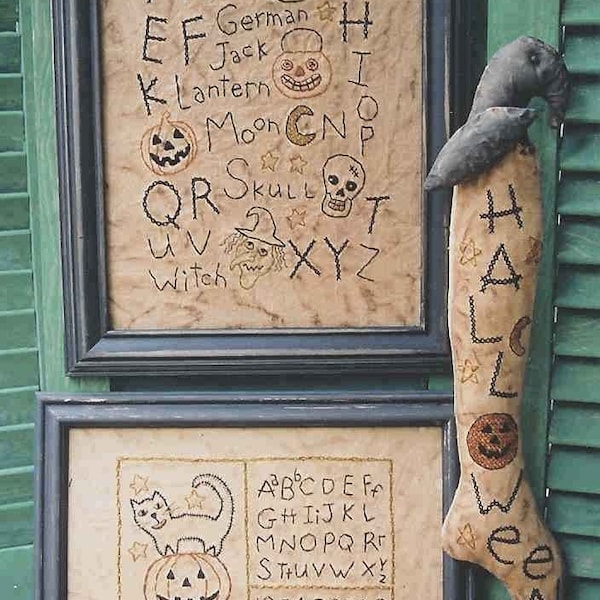 German H
E F Jack
Lantern I
K O
Moon C N P
Skull
Q R T
U V X Y Z
Witch
A a B b C D E F f
G H I i J K L
M N O P Q R r
S T U V W X Y Z
H
A
L
L
O
W
e
e